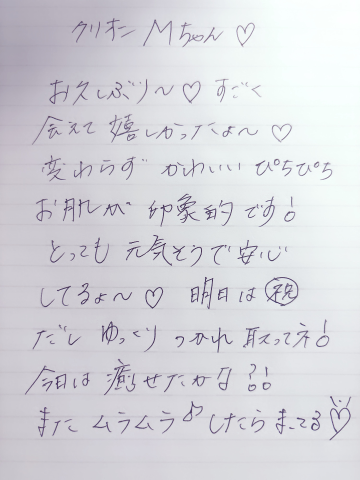 クリオン Mちゃん ♡
お久しぶり〜♡ すごく
会えて 嬉しかったょ〜 ♡
変わらず かわいい ぴちぴち
お肌が 印象的です!
とっても 元気そうで安心
してるょ〜 ♡ 明日は ㊗
だし ゆっくり つかれ 取ってネ!
今日は 癒せたかな?!
また ムラムラ♪したら まってる♡